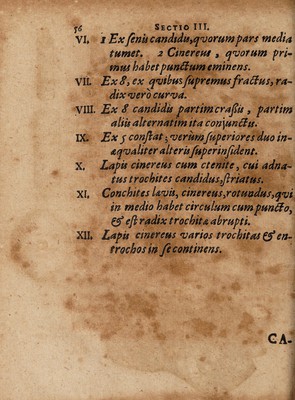 56 SECTIO III.
VI. 1 Ex senis candidis, quorum pars media
tumet. 2 Cinereus, quorum pri-
mus habet punctum eminens.
VII. Ex 8, ex quibus supremus fractus, ra-
dix verò curva.
VIII. Ex 8 candidis partim crassis, partim
aliis alternatim ita conjunctis.
IX. Ex 5 constat, verùm superiores duo in-
æqualiter alteris superinsident.
X. Lapis cinereus cum ctenite, cui adna-
tus trochites candidus, striatus.
XI. Conchites lævis, cinereus, rotundus, qui
in medio habet circulum cum puncto,
& est radix trochitæ abrupti.
XII. Lapis cinereus varios trochitas & en-
trochos in se continens.
CA-